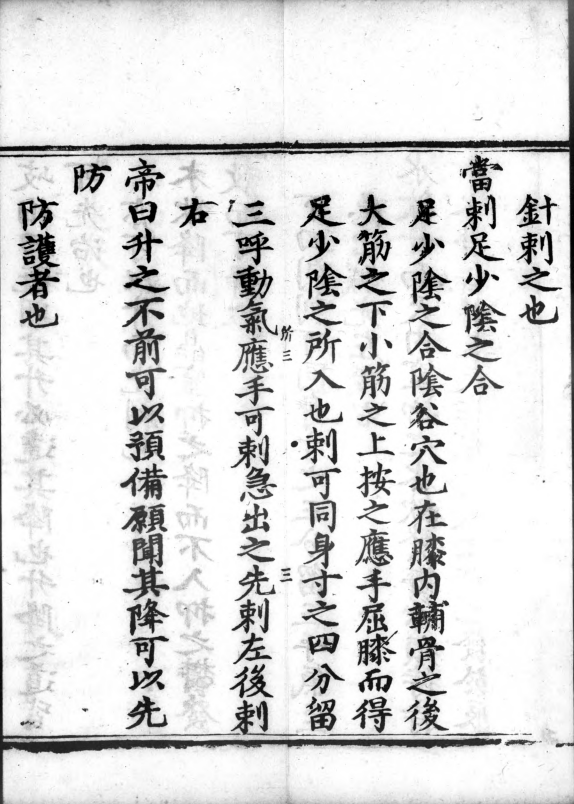 針刺之也
當刺足少陰之合
足少陰之合陰谷穴也在膝内輔骨之後
大筋之下小筋之上按之應手屈膝而得
足少陰之所入也刺可同身寸之四分留
三呼動氣應手可刺急出之先刺左後刺
右
帝曰升之不前可以預備願聞其降可以先
防
防護者也